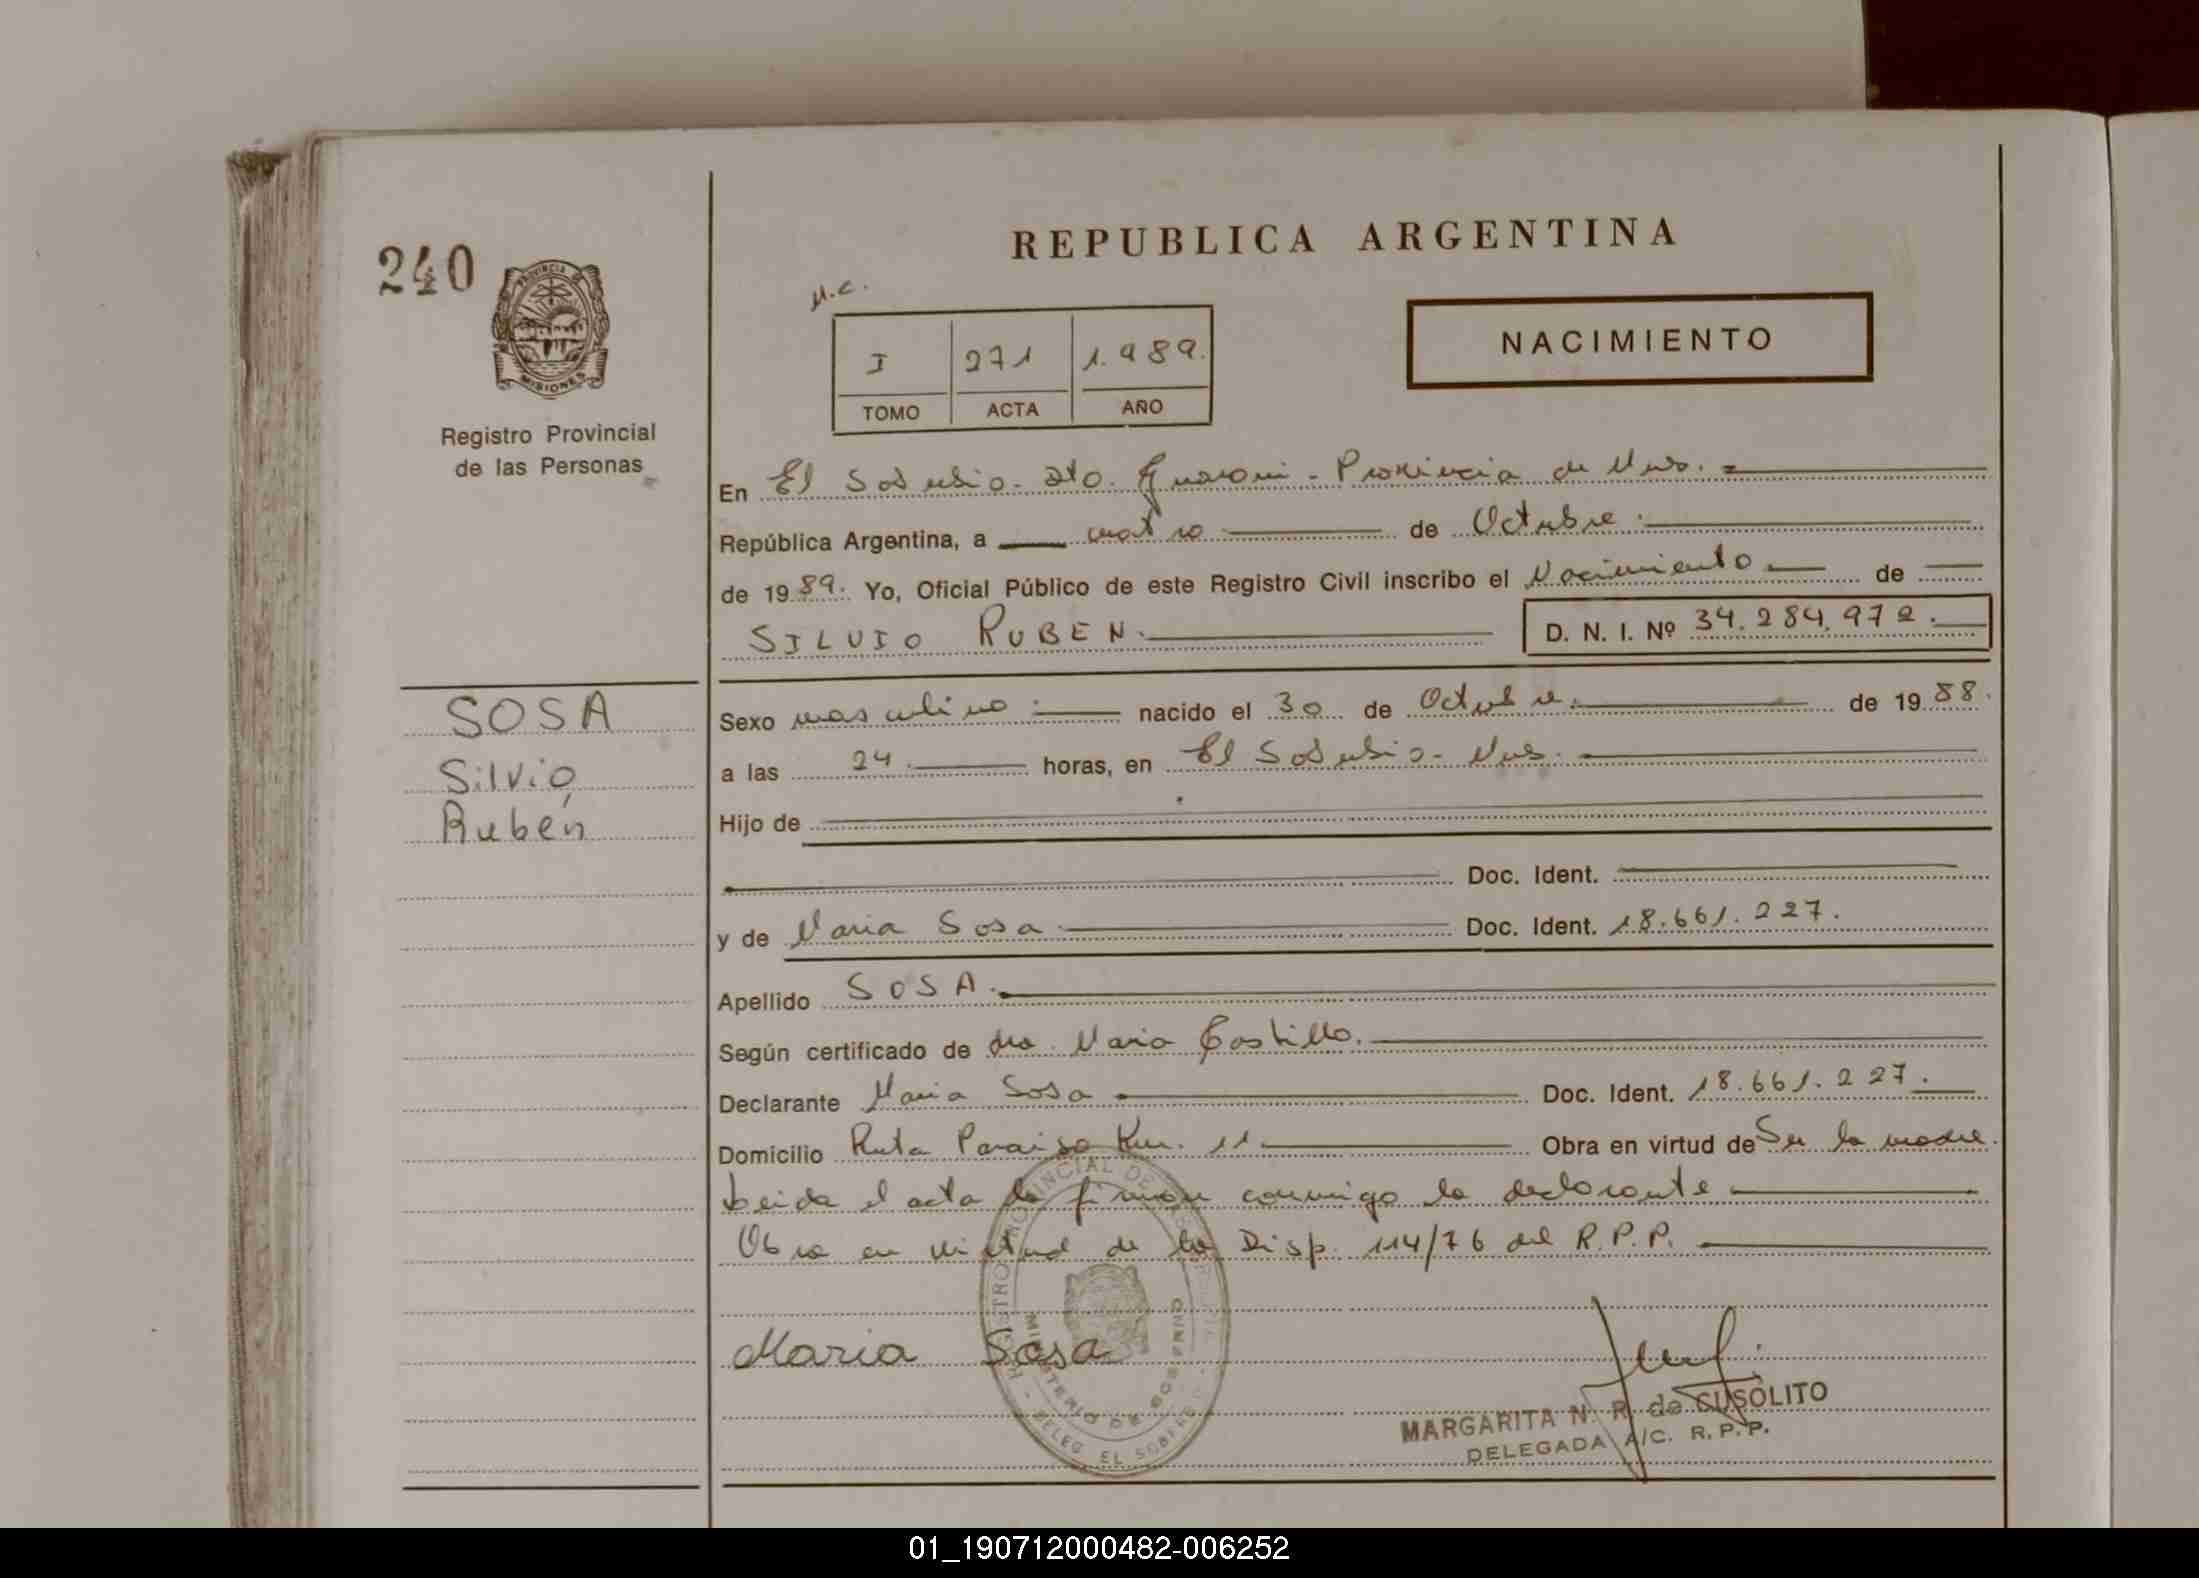 REPUBLICA ARGENTINA
240
PROVINCIA DE
MISIONES
Registro Provincial
de las Personas
M.C.
NACIMIENTO
I 271 1.989.
TOMO ACTA AÑO
En El Soberbio - Dto. Guarani - Provincia de Mnes.
República Argentina, a cuatro de Octubre
de 1989. Yo, Oficial Público de este Registro Civil inscribo el Nacimiento de
SILVIO RUBEN. D. N. I. Nº 34.284.972.
SOSA
Silvio
Rubén
Sexo masculino nacido el 30 de Octubre. de 1988.
a las 24 horas, en El Soberbio - Mnes.
Hijo de
Doc. Ident.
y de Maria Sosa Doc. Ident. 18.661.227.
Apellido SOSA.
Según certificado de dra. Maria Castillo.
Declarante Maria Sosa Doc. Ident. 18.661.227.
Domicilio Ruta Paraiso Km. 11 Obra en virtud de Ser la madre.
Leida el acta la firman conmigo la declarante
Obra en virtud de la Disp. 114/76 del R.P.P.
REGISTRO PROVINCIAL DE LAS PERSONAS
MINISTERIO DE GOBIERNO
DELEG EL SOBERBIO
Maria Sosa
MARGARITA N. R. de CUSOLITO
DELEGADA A/C. R.P.P.
01_190712000482-006252